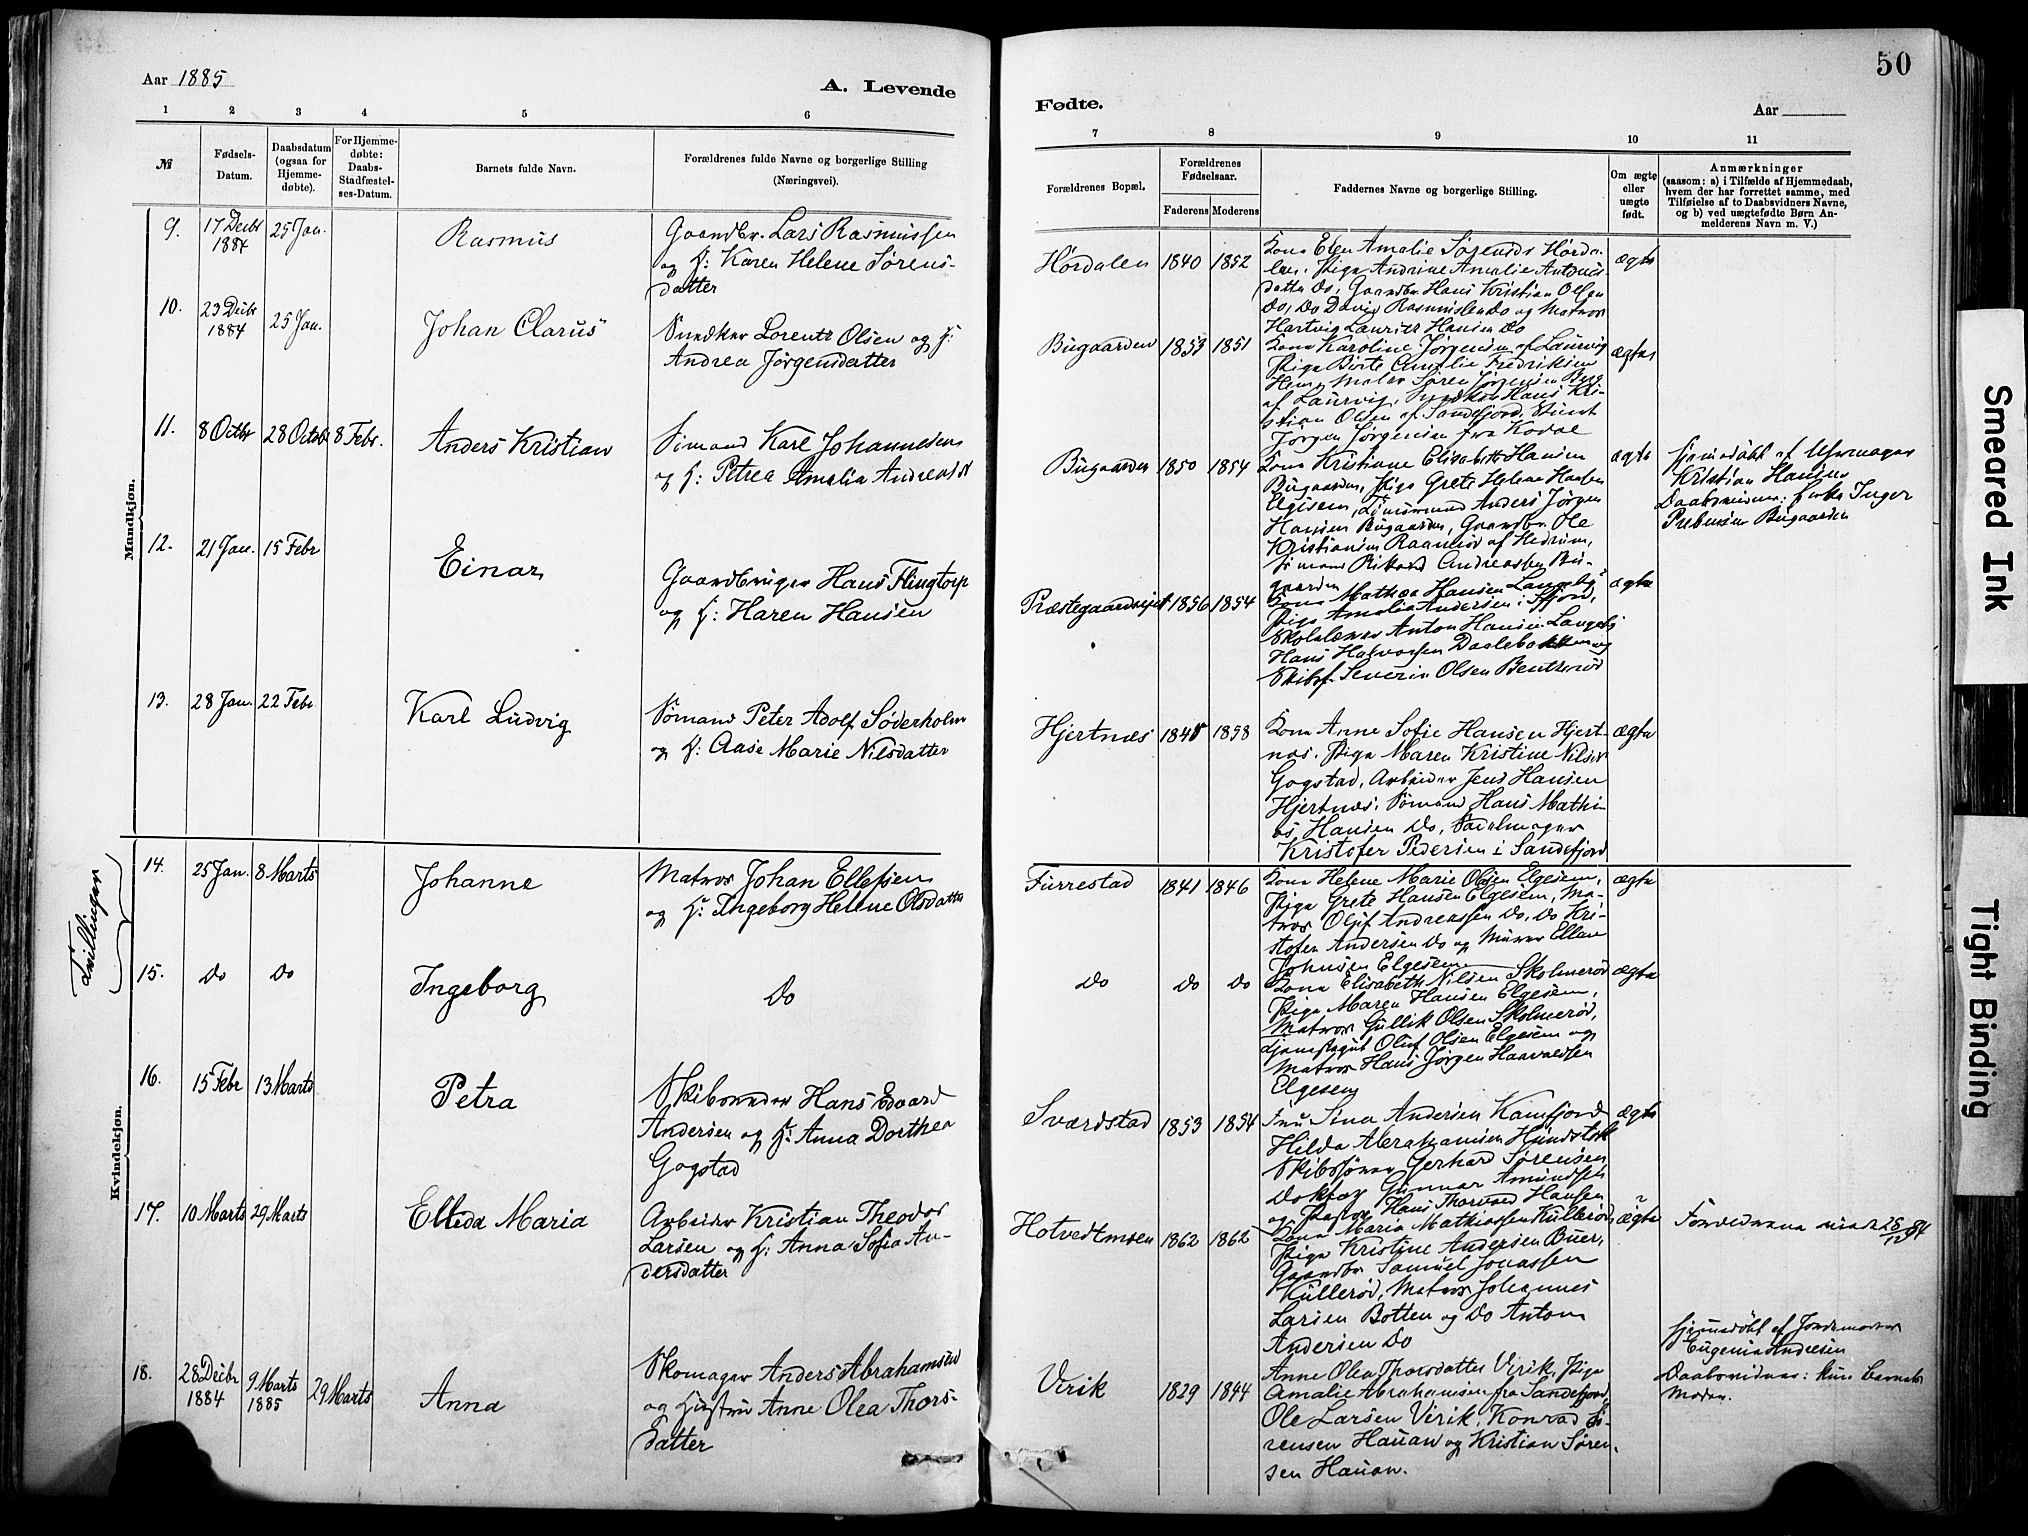 50
Aar 1885
A. Levende
Fødte.
Aar
1 2 3 4 5 6 7 8 9 10 11
№
Fødsels-Datum.
Daabsdatum (ogsaa for Hjemmedøbte).
For Hjemmedøbte: Daabs-Stadfæstelses-Datum.
Barnets fulde Navn.
Forældrenes fulde Navne og borgerlige Stilling
(Næringsvei).
Forældrenes Bopæl.
Forældrenes Fødselsaar.
Faderens Moderens
Faddernes Navne og borgerlige Stilling.
Om ægte eller uægte født.
Anmærkninger
(saasom: a) i Tilfælde af Hjemmedaab,
hvem der har forrettet samme, med
Tilføielse af to Daabsvidners Navne,
og b) ved uægtefødte Børn An-
melderens Navn m. V.)
Mandkjøn.
9. 17 Decbr 1884 25 Jan. Rasmus
Gaardbr. Lars Rasmussen
og H: Karen Helene Sørens-
datter
Hørdalen 1840 1852
Kona Elen Amalie Sørensd. Hørda-
len, Pige Andrine Amalie Antonis-
datter Do, Gaardbr Hans Kristian Olsen
Do, Do David Rasmussen Do og Matros
Hartvig Lauritz Hansen Do
ægte
10. 23 Decbr 1884 25 Jan. Johan Clarus
Snedker Lorents Olsen og H:
Andrea Jørgensdatter
Bugaarden 1853 1851
Kona Karoline Jørgensen af Laurvig
Pige Birte Amalie Fredriksen
Hem, Maler Søren Jørgensen Berg
af Laurvig, Snedker Hans Kri-
stian Olsen af Sandefjord, Stient
Jørgen Jørgensen fra Kodal
ægte
11. 8 Octbr 28 Octbr 8 Febr. Anders Kristian
Sømand Karl Johannesen
og H: Petrea Amalia Andreasd
Bugaarden 1850 1854
Kona Kristiane Elisabeth Hansen
Bugaarden, Pige Grete Helene Hansen
Elgesem, Tømmermand Anders Jørgen
Hansen Bugaarden, Gaardbr. Ole
Kristiansen Raanerød af Hedrum,
Sømand Rikard Andreassen Bu-
gaarden
ægte
Hjemmedøbt af Uhrmager
Kristian Hansen
Daabsvidner: Enke Inger
Prebensen Bugaarden
12. 21 Jan. 15 Febr Einar
Gaardbruger Hans Flingtorp
og H: Haren Hansen
Præstegaardseiet 1856 1854
Kona Mathea Hansen Langeby,
Pige Amalia Andersen i Sfjord,
Skolelærer Anton Hansen Langeby
Hans Halvorsen Daalebakken og
Skibsf. Severin Olsen Bentserød
ægte
13. 28 Jan. 22 Febr Karl Ludvig
Sømand Peter Adolf Søderholm
og H: Aase Marie Nilsdatter
Hjertnæs 1848 1858
Kona Anne Sofie Hansen Hjert-
næs, Pige Maren Kristine Nilsen
Gogstad, Arbeider Jens Hansen
Hjertnæs, Sømand Hans Mathi-
as Hansen Do, Sadelmager
Kristofer Pedersen i Sandefjord
ægte
Kvindekjøn.
Tvillinger
14. 25 Jan. 8 Marts Johanne
Matros Johan Ellefsen
og H: Ingeborg Helene Olsdatter
Furrestad 1841 1846
Kona Helene Marie Olsen Elgesem,
Pige Grete Hansen Elgesem, Ma-
tros Oluf Andreassen Do, Do Kri-
stofer Andersen Do og Murer Ellev
Johnsen Elgesem
ægte
15. Do Do Ingeborg
Do
Do Do Do
Kona Elisabeth Nilsen Skolmerød
Pige Maren Hansen Elgesem,
Matros Gullik Olsen Skolmerød,
Tjenstegut Oluf Olsen Elgesem og
Matros Hans Jørgen Haavaldsen
Elgesem
ægte
16. 15 Febr 13 Marts Petra
Skibsreder Hans Edvard
Andersen og H: Anna Dorthea
Gogstad
Sværdstad 1853 1854
Fru Sina Andersen Kamfjord
Hilda Abrahamsen Hundstok
Skibsfører Gerhard Sørensen
Doktor Gunnar Amundsen
og Pastor Hans Thorvald Hansen
ægte
17. 10 Marts 29 Marts Elleda Maria
Arbeider Kristian Theodor
Larsen og H: Anna Sofia An-
dersdatter
Hotvedtmoen 1862 1862
Kona Maria Mathiassen Kullerød
Pige Kristine Andersen Buer,
Gaardbr Samuel Jonassen
Kullerød, Matros Johannes
Larsen Botten og Do Anton
Andersen Do
ægte
Forældrene viet 25/12 84
18. 28 Decbr 1884 9 Marts 1885 29 Marts Anna
Skomager Anders Abrahamsen
og Hustru Anne Olea Thors-
datter
Virik 1829 1844
Anne Olea Thorsdatter Virik, Pige
Amalie Abrahamsen fra Sandefjord,
Ole Larsen Virik, Konrad Sø-
rensen Hauan og Kristian Søren-
sen Hauan.
Hjemmedøbt af Jordemoder
Eugenia Andersen
Daabsvidner: kun barnets
Moder.
Smeared Ink
Tight Binding